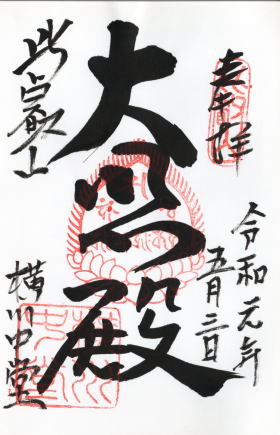 奉拝
令和元年
五月三日
大悲殿
比叡山
横川中堂